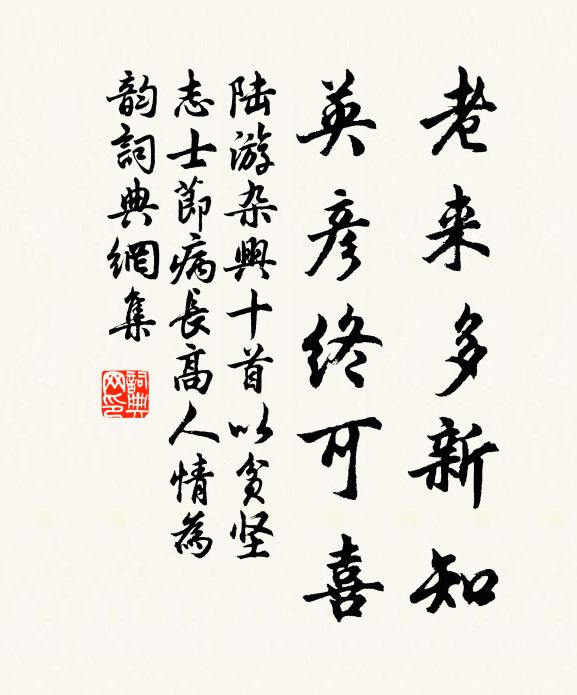 老来多新知
英彦终可喜
陆游杂興十首以贫坚
志士節病長高人情為
韵詞典網集
詞典
网印